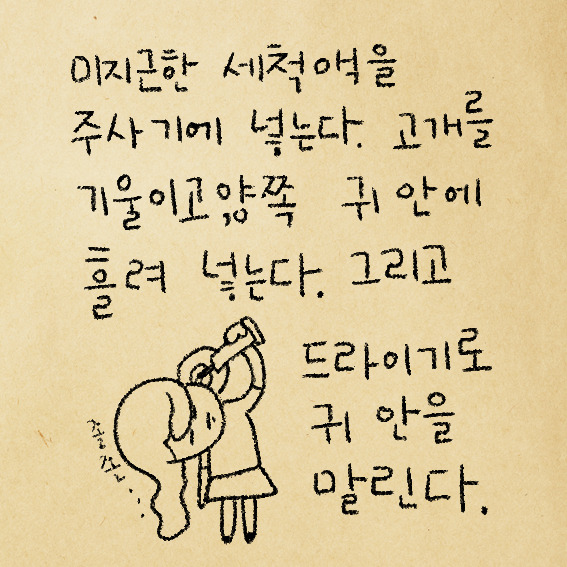 미지근한 세척액을
주사기에 넣는다. 고개를
기울이고 양쪽 귀 안에
흘려 넣는다. 그리고
드라이기로
귀 안을
말린다.
졸
졸...